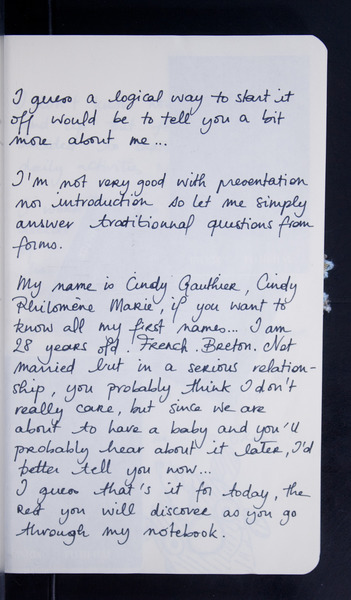 I guess a logical way to start it
off would be to tell you a bit
more about me...
I'm not very good with presentation
nor introduction so let me simply
answer traditionnal questions from
forms.
My name is Cindy Gauthier, Cindy
Philomène Marie, if you want to
know all my first names... I am
28 years old. French. Breton. Not
married but in a serious relation-
ship, you probably think I don't
really care, but since we are
about to have a baby and you'll
probably hear about it later, I'd
better tell you now...
I guess that's it for today, the
rest you will discover as you go
through my notebook.